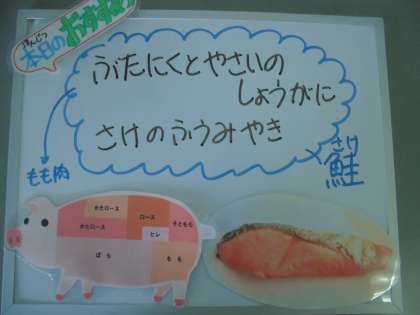 ほんじつ
本日のおすすめ
ぶたにくとやさいの
しょうがに
さけのふうみやき
もも肉
さけ
鮭
かたロース
ロース
かたロース
そともも
ヒレ
ばら
もも